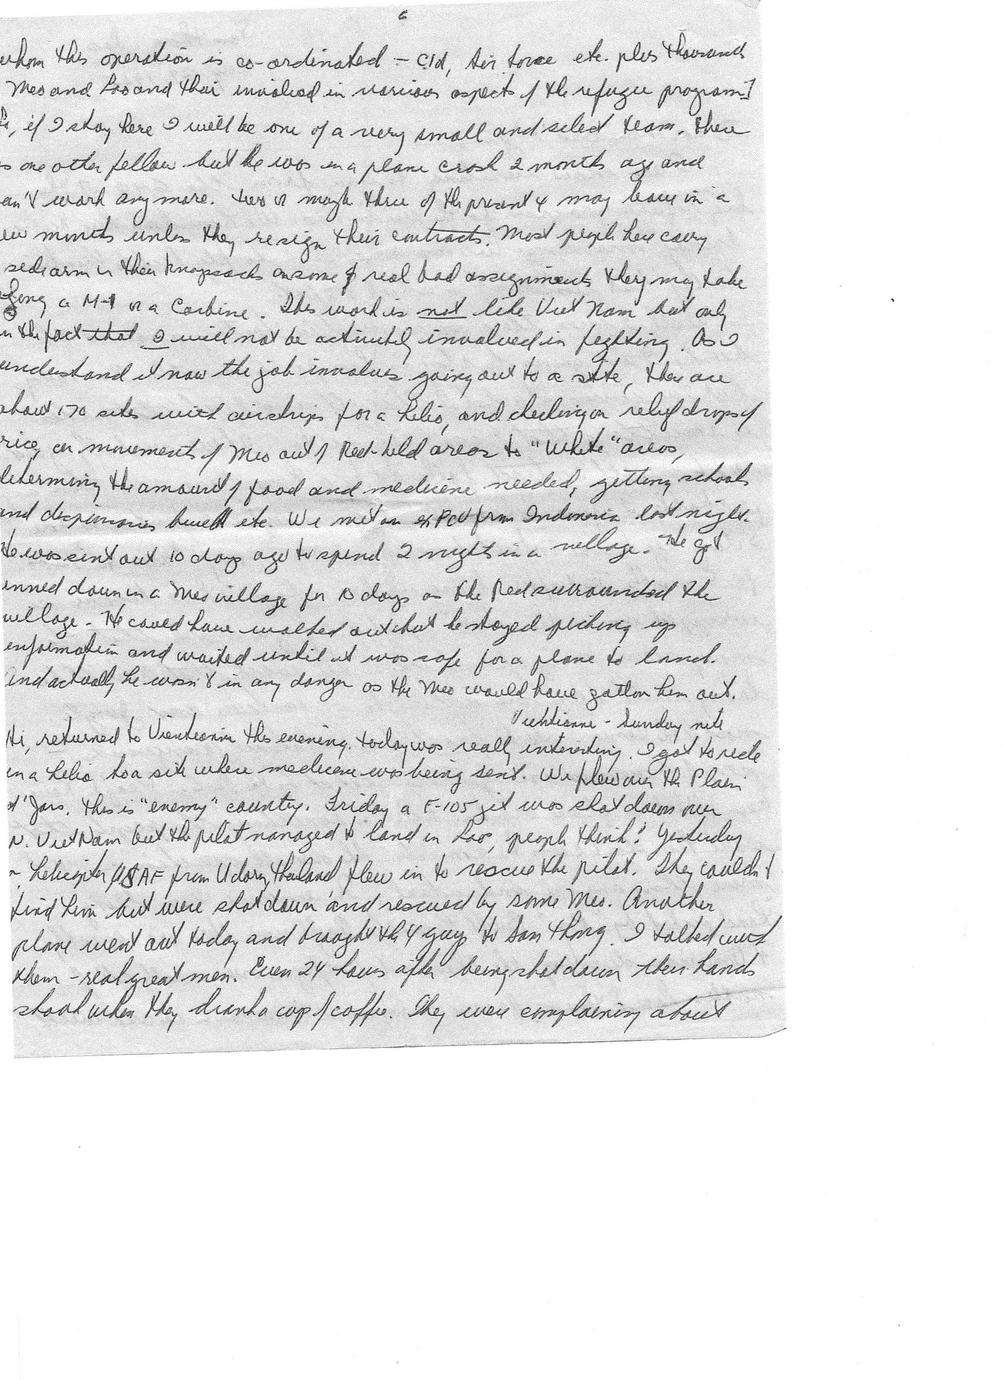 6
whom this operation is co-ordinated - CIA, Air Force etc. plus thousands
Meo and Lao and Thai involved in various aspects of the refugee program.]
if I stay here I will be one of a very small and select team. There
s one other fellow but he was in a plane crash 2 months ago and
an't work any more. Two or maybe three of the present 4 may leave in a
ew months unless they resign their contracts. Most people here carry
sidearm in their knapsacks or some of real bad assignments they may take
along a M-1 or a Carbine. This work is not like Viet Nam but only
in the fact that I will not be actively involved in fighting. As I
understand it now the job involves going out to a site, there are
about 170 sites with airstrips for a helio, and checking on relief drops of
rice, or movements of Meo out of Red-held areas to "White" areas,
determining the amount of food and medicine needed, getting schools
and dispensaries built etc. We met an ex PCV from Indonesia last night.
He was sent out 10 days ago to spend 2 nights in a village. He got
inned down in a Meo village for 10 days as the Reds surrounded the
village. He could have walked out but he stayed picking up
information and waited until it was safe for a plane to land.
And actually he wasn't in any danger as the Meo would have gotten him out.
Vientianne - Sunday nite
Hi, returned to Vientianne this evening. Today was really interesting. I got to ride
in a helio to a site where medicine was being sent. We flew over the Plain
d'Jars. This is "enemy" country. Friday a F-105 jet was shot down over
N. Viet Nam but the pilot managed to land in Lao, people think! Yesterday
a helicopter USAF from Udorn, Thailand flew in to rescue the pilot. They couldn't
find him but were shot down and rescued by some Meo. Another
plane went out today and brought the 4 guys to Sam Thong. I talked with
them - real great men. Even 24 hours after being shot down their hands
shook when they drank a cup of coffee. They were complaining about